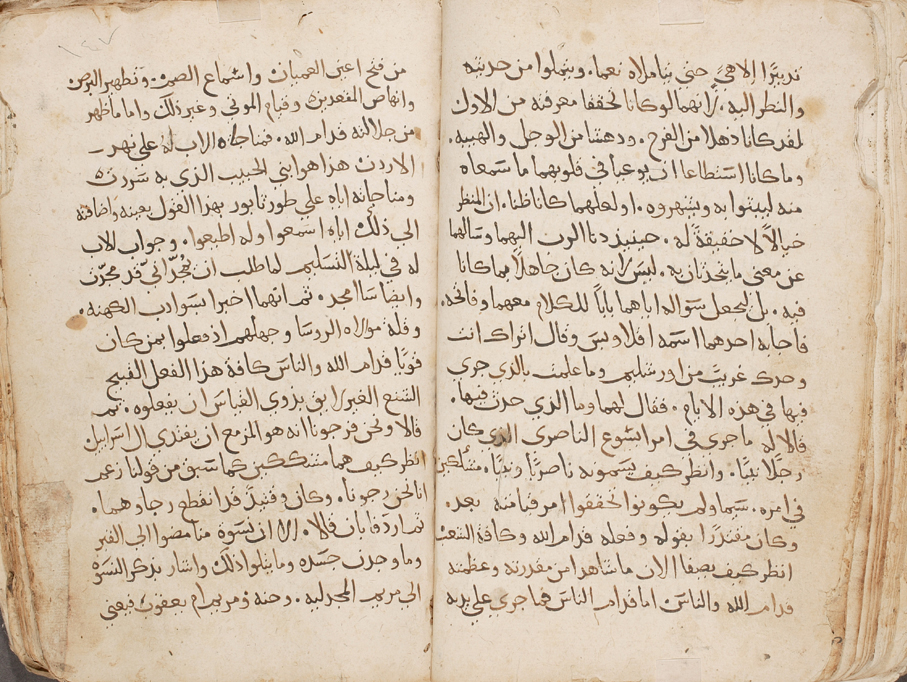 تدبيرًا الاهيًا حتى يتاملاه نعما. ويتملوا من حديثه
والنظر اليه. لانهما لو كانا تحققا معرفته من الاول
لقد كانا ذهلا من الفرح. ودهشا من الوجل والهيبه.
وما كانا استطاعا ان يوعبا في قلوبهما ما سمعاه
منه ليبشوا به ويشهروه. او لعلهما كانا ظنا. ان المنظر
خيالاً لا حقيقةً له. حينيذ دنا الرب اليهما وسالهما
عن معنى ما يتحدثان به. ليس لانه كان جاهلاً مما كانا
فيه. بل ليجعل سواله اياهما باباً للكلام معهما وفاتحه.
فاجابه احدهما اسمه اقلاوبس وقال اتراك انت
وحدك غريبً من اورشليم وما علمت بالذي جرى
فيها في هذه الايام. فقال لهما وما الذي حدث فيها.
قالا له ما جرى في امر ايشوع الناصرى الذي كان
رجلًا نبيًا. وانظر كيف يسموه ناصريًا ونبيًا. متشككين
في امره. سيما ولم يكونوا تحققوا امر قيامته بعد.
وكان مقتدرًا بقوله وفعله قدام الله وكافة الشعب
انظر كيف يصفا الان ما شاهدا من مقدرته وعظمته
قدام الله والناس اما قدام الناس فما جري علي يديه
١٤٧
من فتح اعين العميان واسماع الصم وتطهير البرص
وانهاض المقعدين وقيام الموتي وغير ذلك واما ما ظهر
من جلالته قدام الله. فمناجاة الاب له علي نهر
الاردن هذا هو ابني الحبيب الذي به سررت
ومناجاته اياه علي طور تابور بهذا القول بعينه واضافته
الي ذلك اياه اسمعوا وله اطيعوا. وجواب الاب
له في ليلة التسليم لما طلب ان مجّدني قد مجّدت
وايضًا سامجد. ثم انهما اخبرا بسوادب الكهنه.
وقلة موالاه الروسا وجهلهم اذ فعلوا بمن كان
قويًا قدام الله والناس كافة هذا الفعل القبيح
الشنع الغير لايق بذوي القياس ان يفعلوه. ثم
قالا ونحن فرجونا انه هو المزمع ان يفتدي ال اسرايل
انظر كيف هما متشككين كما سبق من قولنا زعمر
انا نحن رجونا. وكان وقتيذً قد انقطع رجاوهما.
ثم اردفا بان قالا. الا ان نسوة منا مضوا الي القبر
وما وجدن جسده وما يتلوا ذلك واشار بذكر النسوه
الي مريم المجدليه. وحنه ومريم ام يعقوب فيعني